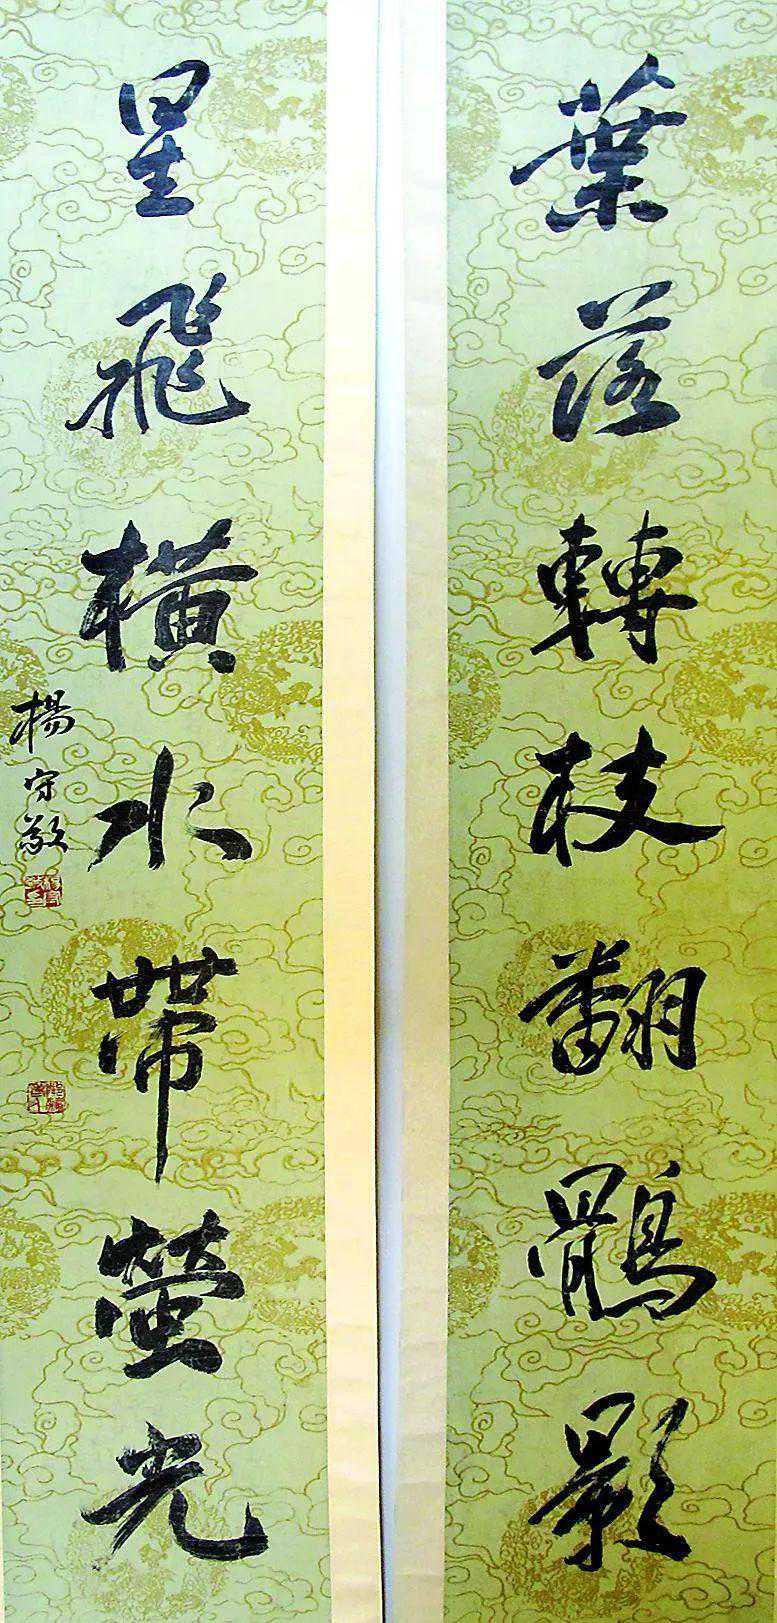 葉落轉枝翻鶻影
星飛橫水帶螢光
楊守敬